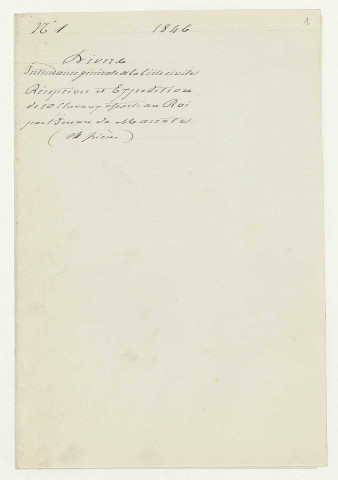 N° 1 1846
Divers
Intendance générale de la liste civile
Réception et Expédition
de 10 Chevaux offerts au Roi
par l'Imam de Mascate
(14 pièces)